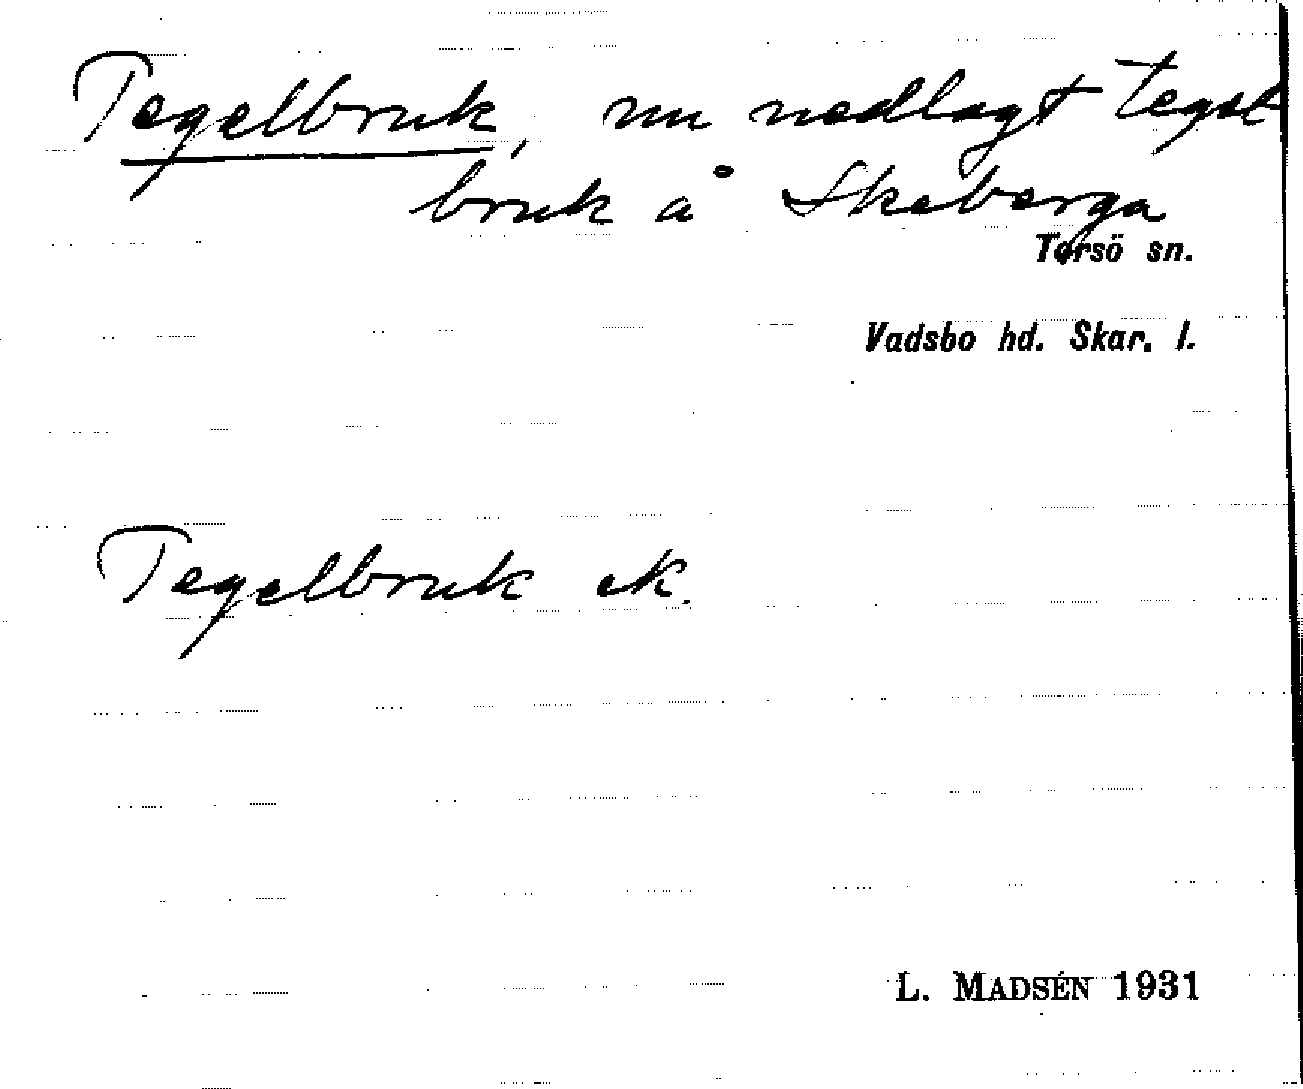 Tegelbruk, nu nedlagt tegel-
bruk å Skeberga
Torsö sn.
Vadsbo hd. Skar. l.
Tegelbruk ek.
L. MADSÉN 1931